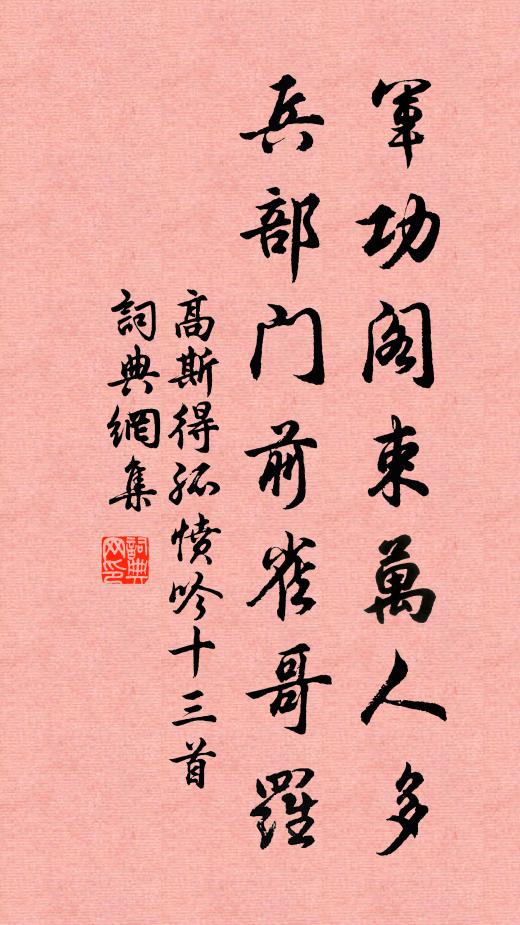 軍功閣束萬人多
兵部門前雀哥羅
高斯得孤憤吟十三首
詞典網集
詞典
网印